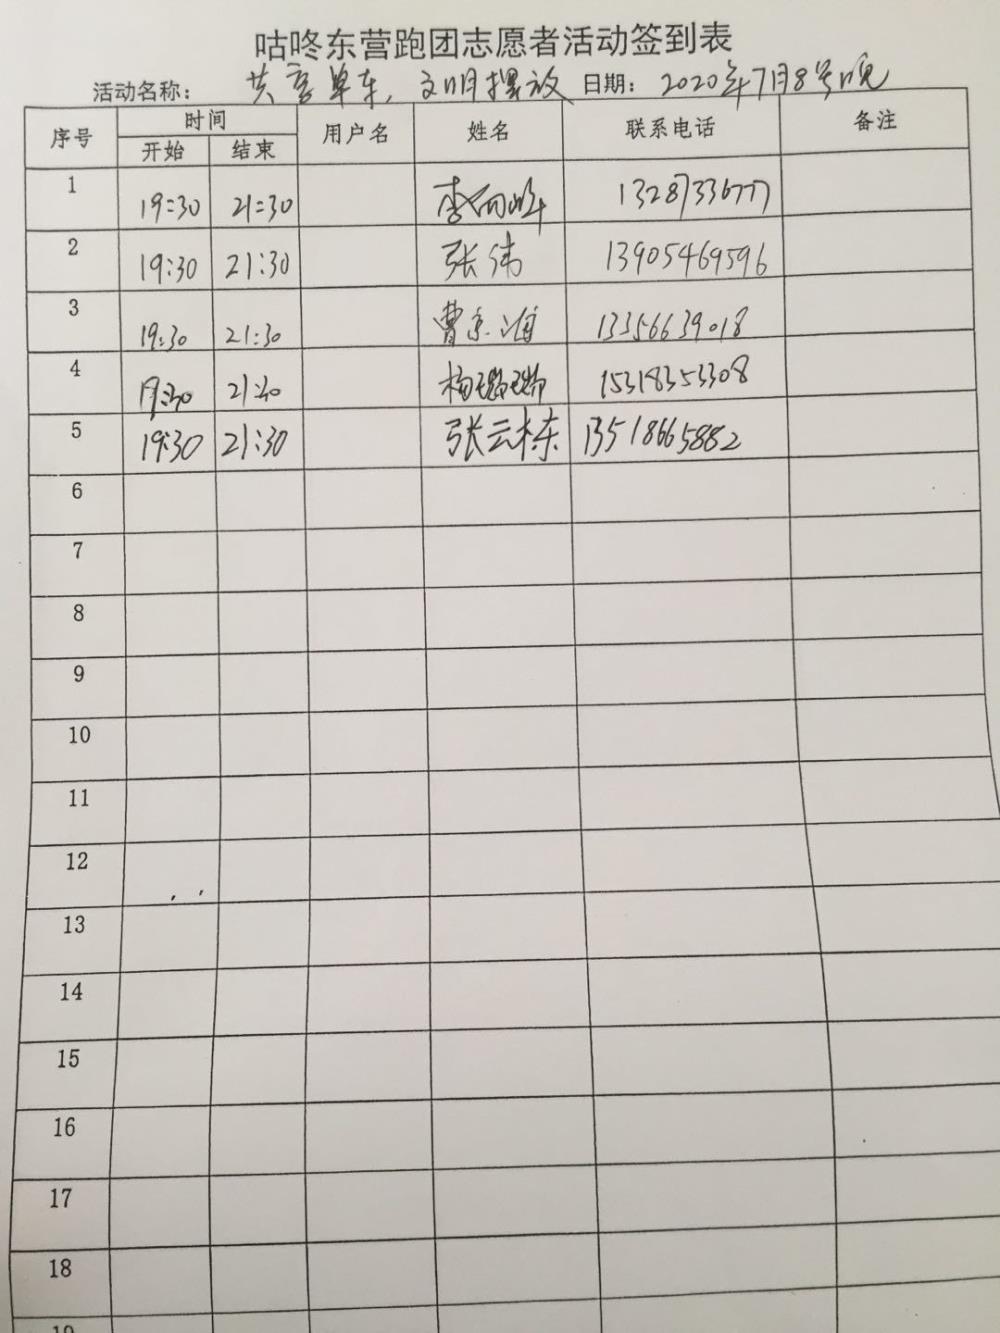 咕咚东营跑团志愿者活动签到表
活动名称: 共享单车,文明摆放 日期: 2020年7月8号晚
序号 时间 用户名 姓名 联系电话 备注
开始 结束
1 19:30 21:30 13287336777
2 19:30 21:30 张伟 13905469596
3 19:30 21:30 13356639018
4 19:30 21:30 杨璐瑞 15318353308
5 19:30 21:30 张云栋 13518665882
6
7
8
9
10
11
12
13
14
15
16
17
18
19